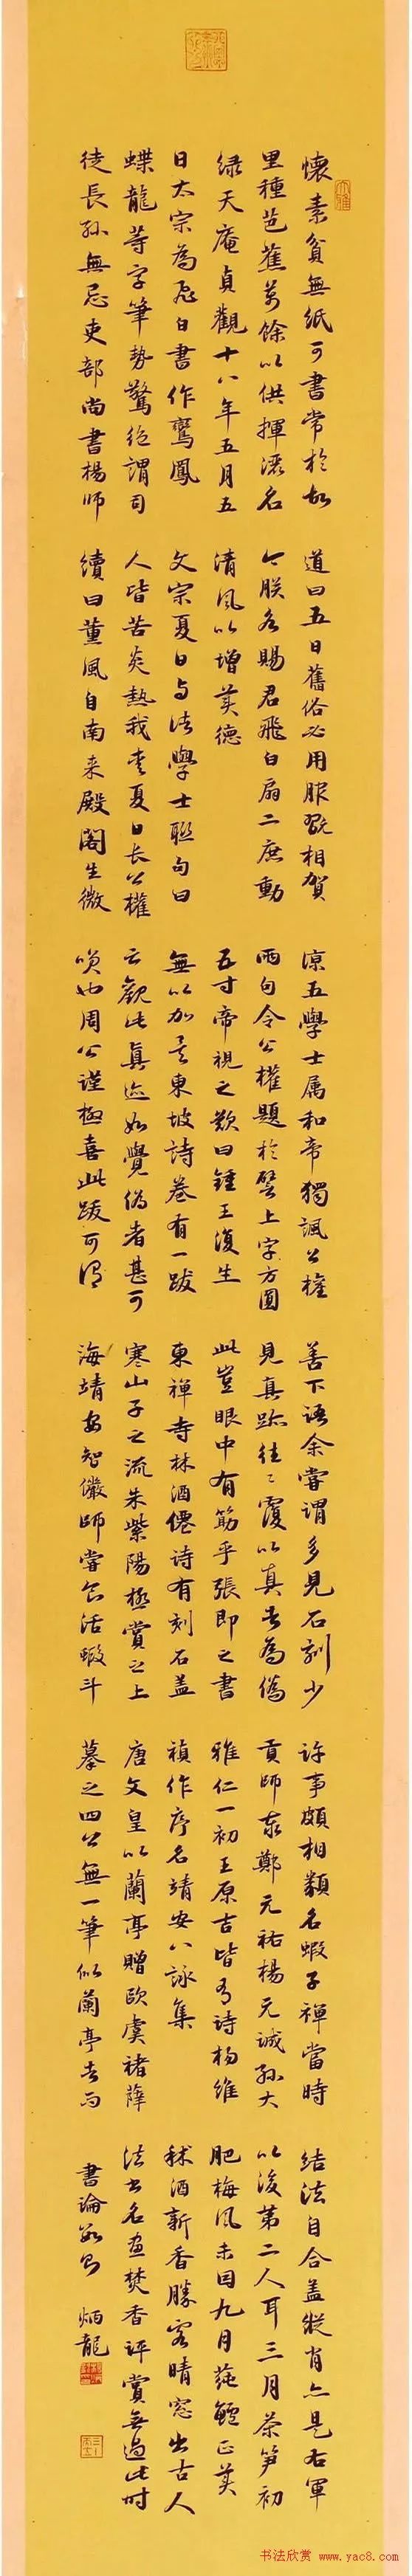 懷素貧無紙可書常於故
里種芭蕉萬餘以供揮灑名
綠天庵貞觀十八年五月五
日太宗為飛白書作鸞鳳
蝶龍等字筆勢驚絕謂司
徒長孫無忌吏部尚書楊師
道曰五日舊俗必用服翫相賀
今朕各賜君飛白扇二庶動
清風以增美德
文宗夏日與諸學士聯句曰
人皆苦炎熱我愛夏日長公權
續曰薰風自南來殿閣生微
涼五學士屬和帝獨諷公權
兩句令公權題於壁上字方圓
五寸帝視之歎曰鍾王復生
無以加焉東坡詩卷有一跋
云觀此真迹如覺偽者甚可
唉也周公謹極喜此跋可謂
善下語余嘗謂多見石刻少
見真跡往往覆以真者為偽
此豈眼中有筋乎張即之書
東禪寺林酒僊詩有刻石蓋
寒山子之流朱紫陽極賞之上
海靖安智儼師嘗食活蝦斗
許事頗相類名蝦子禪當時
貢師泰鄭元祐楊元誠孫大
雅仁一初王原吉皆有詩楊維
禎作序名靖安八詠集
唐文皇以蘭亭贈歐虞褚薛
摹之四公無一筆似蘭亭者而
結法自合蓋縱肖亦是右軍
以後第二人耳三月茶笋初
肥梅風未困九月蓴鱸正美
秫酒新香勝客晴窓出古人
法書名畫焚香評賞無過此時
書論數則 炳龍
书法欣赏 www.yac8.com